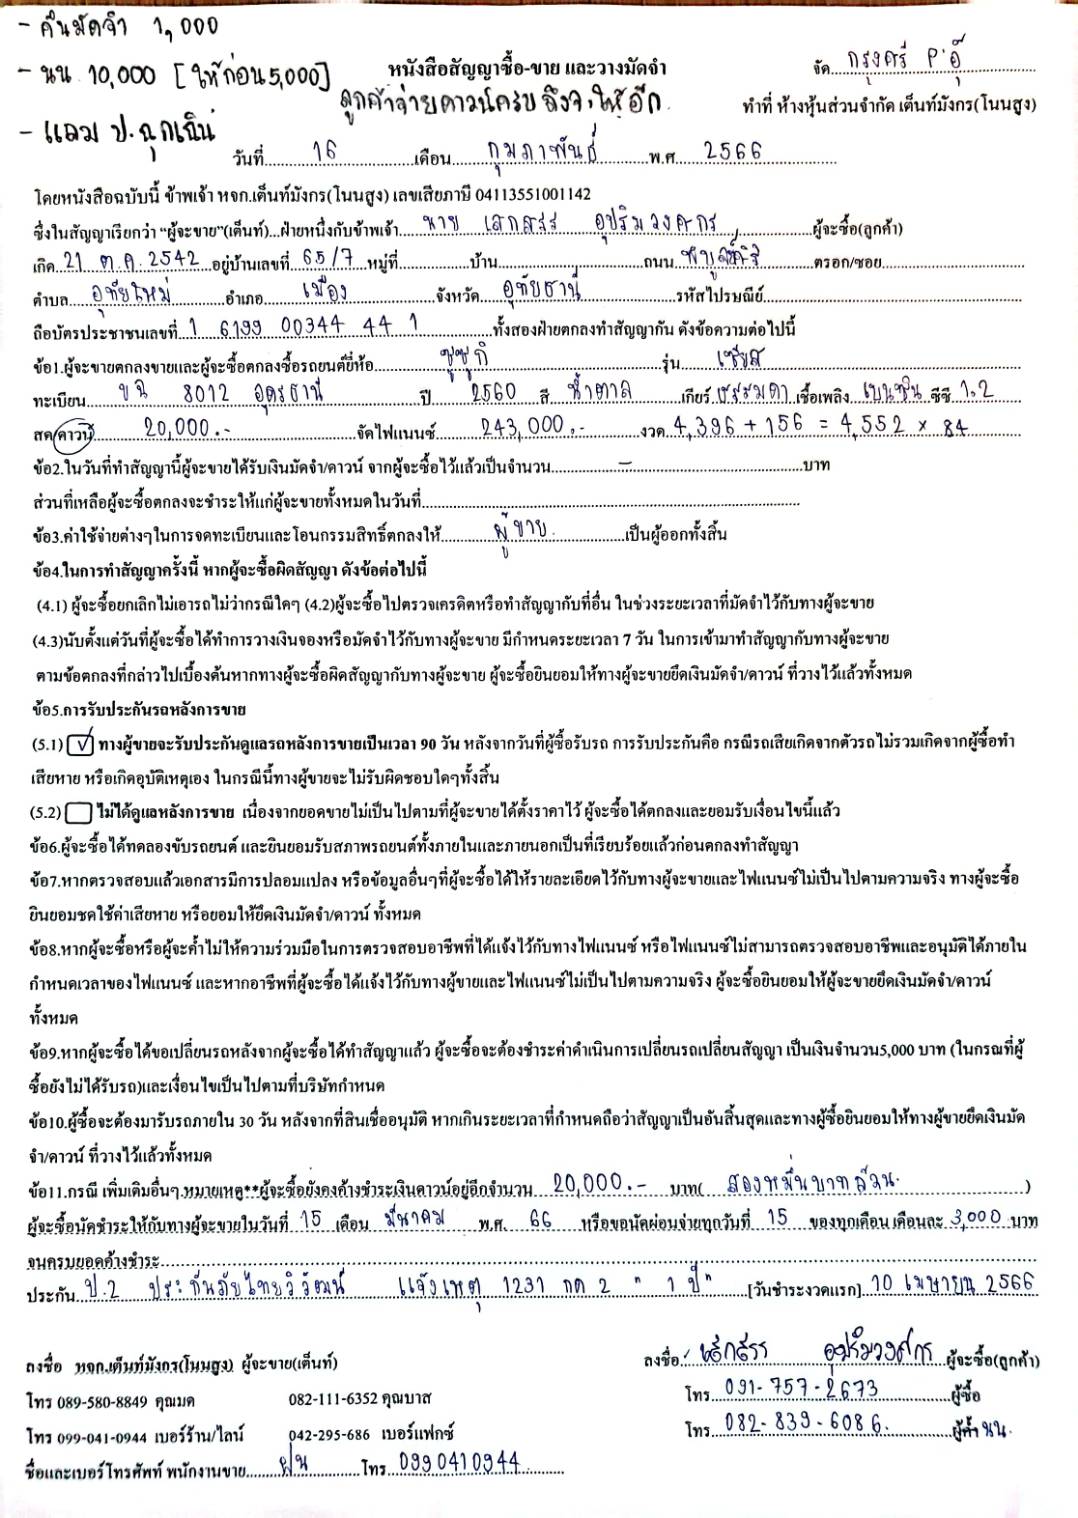 - คืนมัดจำ 1,000
- นน 10,000 [ให้ก่อน5,000]
ลูกค้าจ่ายดาวน์ครบ ถึงจะให้อีก
- แถม ป.ฉุกเฉิน
หนังสือสัญญาซื้อ-ขาย และวางมัดจำ
จัด กรุงศรี P'อุ๊
ทำที่ ห้างหุ้นส่วนจำกัด เต็นท์มังกร(โนนสูง)
วันที่ 16 เดือน กุมภาพันธ์ พ.ศ 2566
โดยหนังสือฉบับนี้ ข้าพเจ้า หจก.เต็นท์มังกร(โนนสูง) เลขเสียภาษี 04113551001142
ซึ่งในสัญญาเรียกว่า “ผู้จะขาย”(เต็นท์)...ฝ่ายหนึ่งกับข้าพเจ้า นาย เสกสรร อุปริมวงศกร ผู้จะซื้อ(ลูกค้า)
เกิด 21 ต.ค. 2542 อยู่บ้านเลขที่ 65/7 หมู่ที่ บ้าน ถนน ตรอก/ซอย
ตำบล อุทัยใหม่ อำเภอ เมือง จังหวัด อุทัยธานี รหัสไปรษณีย์
ถือบัตรประชาชนเลขที่ 1 6199 00344 44 1 ทั้งสองฝ่ายตกลงทำสัญญากัน ดังข้อความต่อไปนี้
ข้อ1.ผู้จะขายตกลงขายและผู้จะซื้อตกลงซื้อรถยนต์ยี่ห้อ ซูซูกิ รุ่น เซียส
ทะเบียน ขฉ 8012 อุดรธานี ปี 2560 สี น้ำตาล เกียร์ ธรรมดา เชื้อเพลิง เบนซิน ซีซี 1.2
สด/ดาวน์ 20,000.- จัดไฟแนนซ์ 243,000.- งวด 4,396 + 156 = 4,552 x 84
ข้อ2.ในวันที่ทำสัญญานี้ผู้จะขายได้รับเงินมัดจำ/ดาวน์ จากผู้จะซื้อไว้แล้วเป็นจำนวน - บาท
ส่วนที่เหลือผู้จะซื้อตกลงจะชำระให้แก่ผู้จะขายทั้งหมดในวันที่
ข้อ3.ค่าใช้จ่ายต่างๆในการจดทะเบียนและโอนกรรมสิทธิ์ตกลงให้ ผู้ขาย เป็นผู้ออกทั้งสิ้น
ข้อ4.ในการทำสัญญาครั้งนี้ หากผู้จะซื้อผิดสัญญา ดังข้อต่อไปนี้
(4.1) ผู้จะซื้อยกเลิกไม่เอารถไม่ว่ากรณีใดๆ (4.2)ผู้จะซื้อไปตรวจเครดิตหรือทำสัญญากับที่อื่น ในช่วงระยะเวลาที่มัดจำไว้กับทางผู้จะขาย
(4.3)นับตั้งแต่วันที่ผู้จะซื้อได้ทำการวางเงินจองหรือมัดจำไว้กับทางผู้จะขาย มีกำหนดระยะเวลา 7 วัน ในการเข้ามาทำสัญญากับทางผู้จะขาย
ตามข้อตกลงที่กล่าวไปเบื้องต้นหากทางผู้จะซื้อผิดสัญญากับทางผู้จะขาย ผู้จะซื้อยินยอมให้ทางผู้จะขายยึดเงินมัดจำ/ดาวน์ ที่วางไว้แล้วทั้งหมด
ข้อ5.การรับประกันรถหลังการขาย
(5.1) ✓ ทางผู้ขายจะรับประกันดูแลรถหลังการขายเป็นเวลา 90 วัน หลังจากวันที่ผู้ซื้อรับรถ การรับประกันคือ กรณีรถเสียเกิดจากตัวรถไม่รวมเกิดจากผู้ซื้อทำ
เสียหาย หรือเกิดอุบัติเหตุเอง ในกรณีนี้ทางผู้ขายจะไม่รับผิดชอบใดๆทั้งสิ้น
(5.2) ไม่ได้ดูแลหลังการขาย เนื่องจากยอดขายไม่เป็นไปตามที่ผู้จะขายได้ตั้งราคาไว้ ผู้จะซื้อได้ตกลงและยอมรับเงื่อนไขนี้แล้ว
ข้อ6.ผู้จะซื้อได้ทดลองขับรถยนต์ และยินยอมรับสภาพรถยนต์ทั้งภายในและภายนอกเป็นที่เรียบร้อยแล้วก่อนตกลงทำสัญญา
ข้อ7.หากตรวจสอบแล้วเอกสารมีการปลอมแปลง หรือข้อมูลอื่นๆที่ผู้จะซื้อได้ให้รายละเอียดไว้กับทางผู้จะขายและไฟแนนซ์ไม่เป็นไปตามความจริง ทางผู้จะซื้อ
ยินยอมชดใช้ค่าเสียหาย หรือยอมให้ยึดเงินมัดจำ/ดาวน์ ทั้งหมด
ข้อ8.หากผู้จะซื้อหรือผู้จะค้ำไม่ให้ความร่วมมือในการตรวจสอบอาชีพที่ได้แจ้งไว้กับทางไฟแนนซ์ หรือไฟแนนซ์ไม่สามารถตรวจสอบอาชีพและอนุมัติได้ภายใน
กำหนดเวลาของไฟแนนซ์ และหากอาชีพที่ผู้จะซื้อได้แจ้งไว้กับทางผู้ขายและไฟแนนซ์ไม่เป็นไปตามความจริง ผู้จะซื้อยินยอมให้ผู้จะขายยึดเงินมัดจำ/ดาวน์
ทั้งหมด
ข้อ9.หากผู้จะซื้อได้ขอเปลี่ยนรถหลังจากผู้จะซื้อได้ทำสัญญาแล้ว ผู้จะซื้อจะต้องชำระค่าดำเนินการเปลี่ยนรถเปลี่ยนสัญญา เป็นเงินจำนวน5,000 บาท (ในกรณที่ผู้
ซื้อยังไม่ได้รับรถ)และเงื่อนไขเป็นไปตามที่บริษัทกำหนด
ข้อ10.ผู้ซื้อจะต้องมารับรถภายใน 30 วัน หลังจากที่สินเชื่ออนุมัติ หากเกินระยะเวลาที่กำหนดถือว่าสัญญาเป็นอันสิ้นสุดและทางผู้ซื้อยินยอมให้ทางผู้ขายยึดเงินมัด
จำ/ดาวน์ ที่วางไว้แล้วทั้งหมด
ข้อ11.กรณี เพิ่มเติมอื่นๆ.หมายเหตุ**ผู้จะซื้อยังคงค้างชำระเงินดาวน์อยู่อีกจำนวน 20,000.- บาท( สองหมื่นบาทล้วน )
ผู้จะซื้อนัดชำระให้กับทางผู้จะขายในวันที่ 15 เดือน มีนาคม พ.ศ. 66 หรือขอนัดผ่อนจ่ายทุกวันที่ 15 ของทุกเดือน เดือนละ 3,000 บาท
จนครบยอดค้างชำระ
ประกัน ป.2 ประกันภัยไทยวิวัฒน์ แจ้งเหตุ 1231 กด 2 " 1 ปี " [วันชำระงวดแรก] 10 เมษายน 2566
ลงชื่อ หจก.เต็นท์มังกร(โนนสูง) ผู้จะขาย(เต็นท์)
ลงชื่อ เสกสรร อุปริมวงศกร ผู้จะซื้อ(ลูกค้า)
โทร 089-580-8849 คุณมด 082-111-6352 คุณบาส
โทร 091-757-2673 ผู้ซื้อ
โทร 099-041-0944 เบอร์ร้าน/ไลน์ 042-295-686 เบอร์แฟกซ์
โทร 082-839-6086. ผู้ค้ำ นน.
ชื่อและเบอร์โทรศัพท์ พนักงานขาย ฝน โทร 0990410944